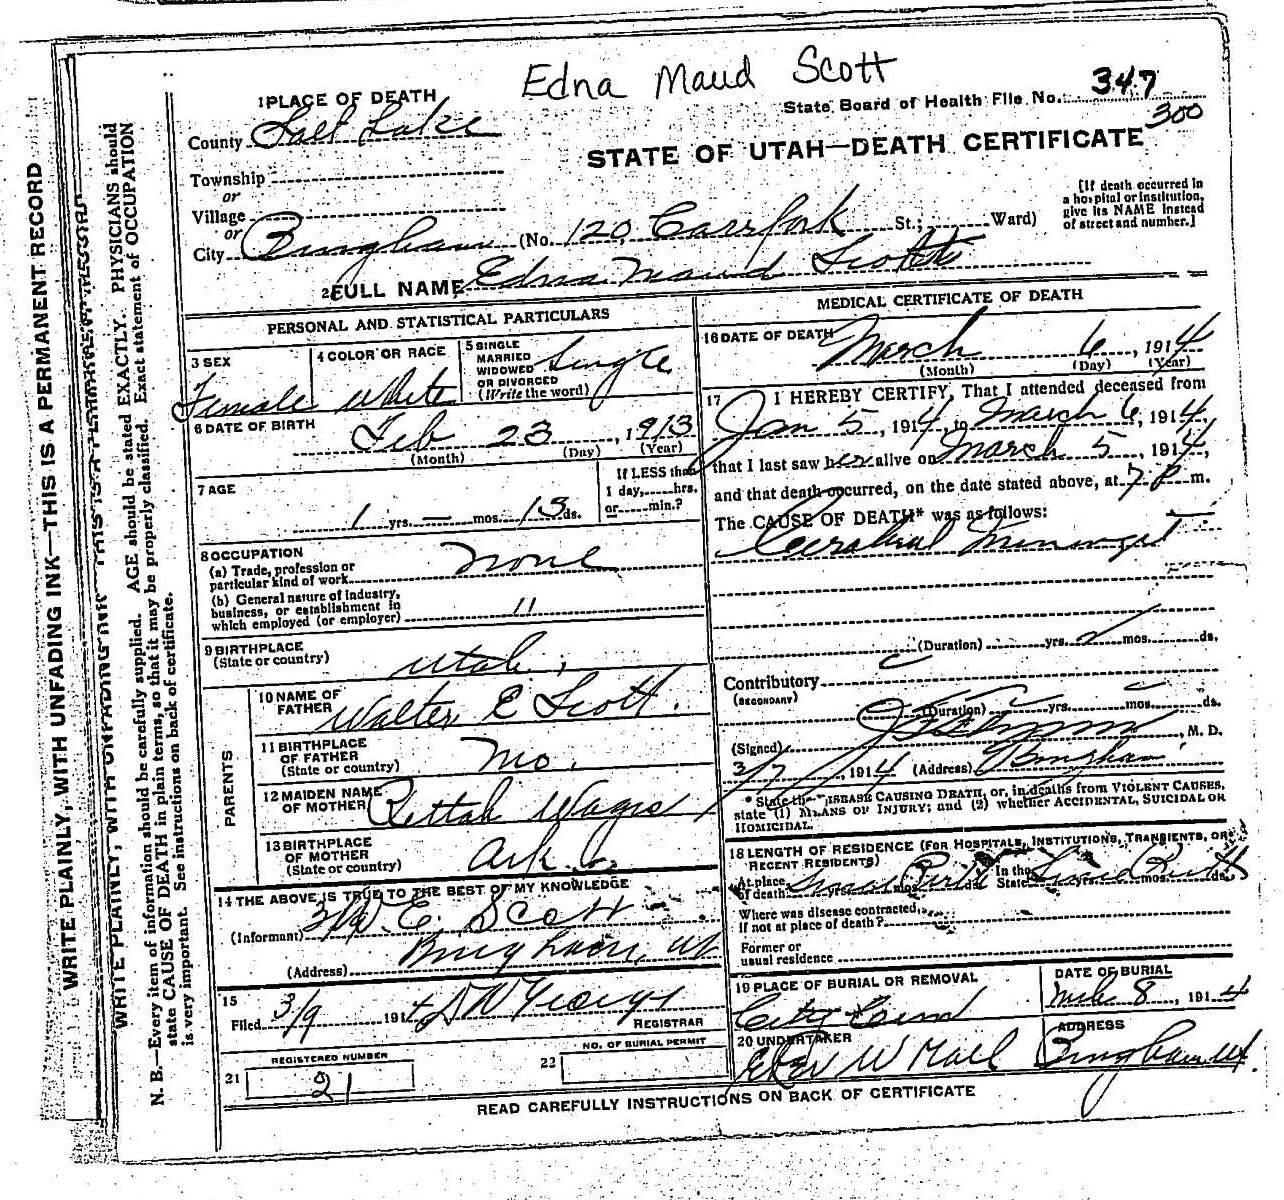 Edna Maud Scott
State Board of Health File No. 347
300
1 PLACE OF DEATH
County Salt Lake
STATE OF UTAH—DEATH CERTIFICATE
Township
or
Village
or
City Bingham (No. 120 Carrfork St.; Ward)
[If death occurred in a hospital or institution, give its NAME instead of street and number.]
2 FULL NAME Edna Maud Scott
PERSONAL AND STATISTICAL PARTICULARS
3 SEX Female
4 COLOR OR RACE White
5 SINGLE MARRIED WIDOWED OR DIVORCED (Write the word) Single
6 DATE OF BIRTH Feb 23, 1913
(Month) (Day) (Year)
7 AGE
1 yrs. — mos. 13 ds.
If LESS than 1 day, hrs. or min.?
8 OCCUPATION
(a) Trade, profession or particular kind of work None
(b) General nature of industry, business, or establishment in which employed (or employer) "
9 BIRTHPLACE (State or country) Utah
PARENTS
10 NAME OF FATHER Walter E Scott.
11 BIRTHPLACE OF FATHER (State or country) Mo.
12 MAIDEN NAME OF MOTHER
13 BIRTHPLACE OF MOTHER (State or country) Ark
14 THE ABOVE IS TRUE TO THE BEST OF MY KNOWLEDGE
(Informant) W. E. Scott
(Address) Bingham, Ut
15
Filed 3/9 1914
REGISTRAR
21 REGISTERED NUMBER 21
22 NO. OF BURIAL PERMIT
MEDICAL CERTIFICATE OF DEATH
16 DATE OF DEATH March 6, 1914
(Month) (Day) (Year)
17 I HEREBY CERTIFY, That I attended deceased from
Jan 5, 1914, to March 6, 1914,
that I last saw her alive on March 5, 1914,
and that death occurred, on the date stated above, at 7 P m.
The CAUSE OF DEATH* was as follows:
(Duration) yrs. mos. ds.
Contributory
(SECONDARY)
(Duration) yrs. mos. ds.
(Signed) M. D.
3/7, 1914 (Address) Bingham
* State the DISEASE CAUSING DEATH, or, in deaths from VIOLENT CAUSES, state (1) MEANS OF INJURY; and (2) whether ACCIDENTAL, SUICIDAL OR HOMICIDAL.
18 LENGTH OF RESIDENCE (FOR HOSPITALS, INSTITUTIONS, TRANSIENTS, OR RECENT RESIDENTS)
At place of death Since Birth In the State Since Birth
Where was disease contracted, if not at place of death?
Former or usual residence
19 PLACE OF BURIAL OR REMOVAL
City
DATE OF BURIAL
8, 1914
20 UNDERTAKER
ADDRESS
Bingham Ut.
READ CAREFULLY INSTRUCTIONS ON BACK OF CERTIFICATE
WRITE PLAINLY, WITH UNFADING INK—THIS IS A PERMANENT RECORD
WRITE PLAINLY, WITH UNFADING INK THIS IS A PERMANENT RECORD
N. B.—Every item of information should be carefully supplied. AGE should be stated EXACTLY. PHYSICIANS should
state CAUSE OF DEATH in plain terms, so that it may be properly classified. Exact statement of OCCUPATION
is very important. See instructions on back of certificate.